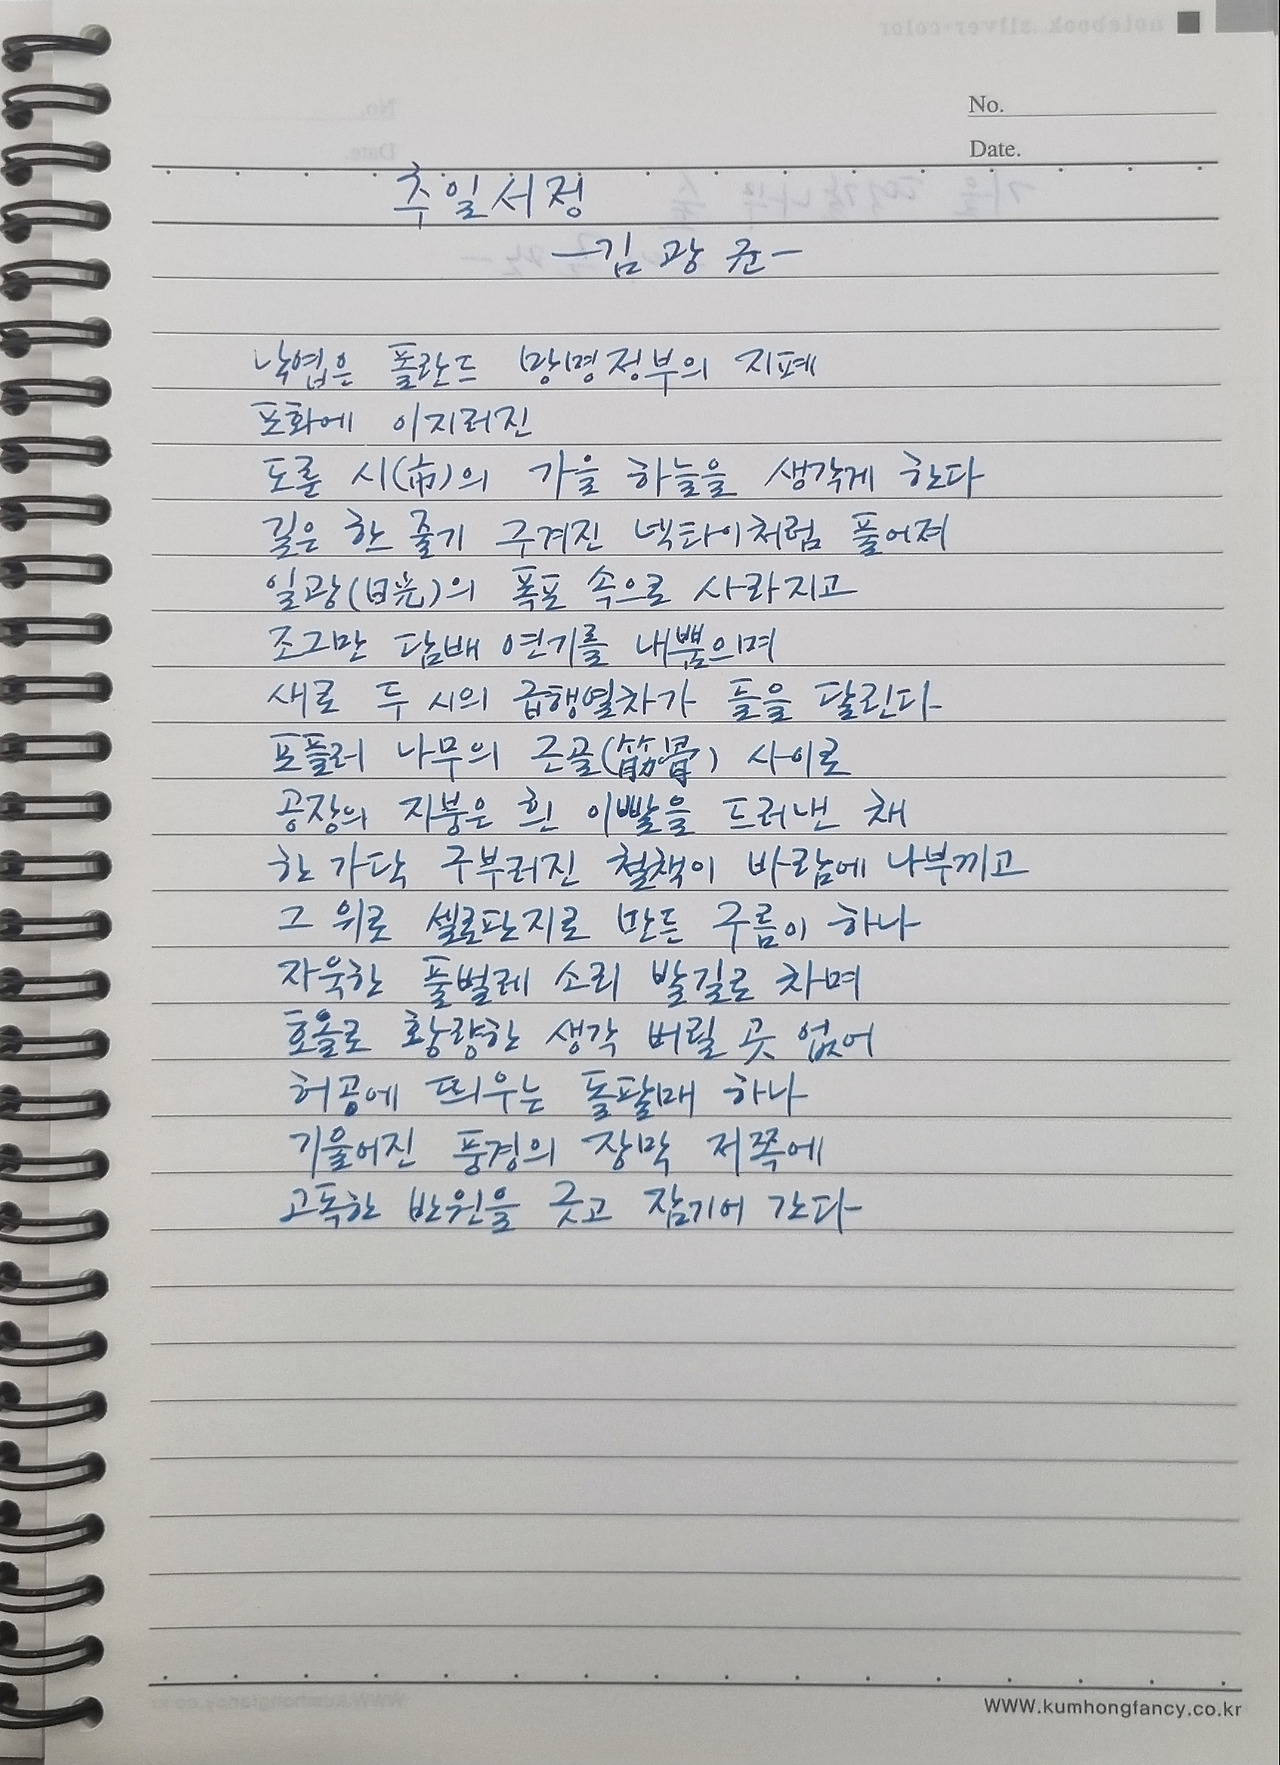 No.
Date.
추일서정
-김광균-
낙엽은 폴란드 망명정부의 지폐
포화에 이지러진
도룬 시(市)의 가을 하늘을 생각게 한다
길은 한 줄기 구겨진 넥타이처럼 풀어져
일광(日光)의 폭포 속으로 사라지고
조그만 담배 연기를 내뿜으며
새로 두 시의 급행열차가 들을 달린다
포플러 나무의 근골(筋骨) 사이로
공장의 지붕은 흰 이빨을 드러낸 채
한 가닥 구부러진 철책이 바람에 나부끼고
그 위로 셀로판지로 만든 구름이 하나
자욱한 풀벌레 소리 발길로 차며
호올로 황량한 생각 버릴 곳 없어
허공에 띄우는 돌팔매 하나
기울어진 풍경의 장막 저쪽에
고독한 반원을 긋고 잠기어 간다
WWW.kumhongfancy.co.kr